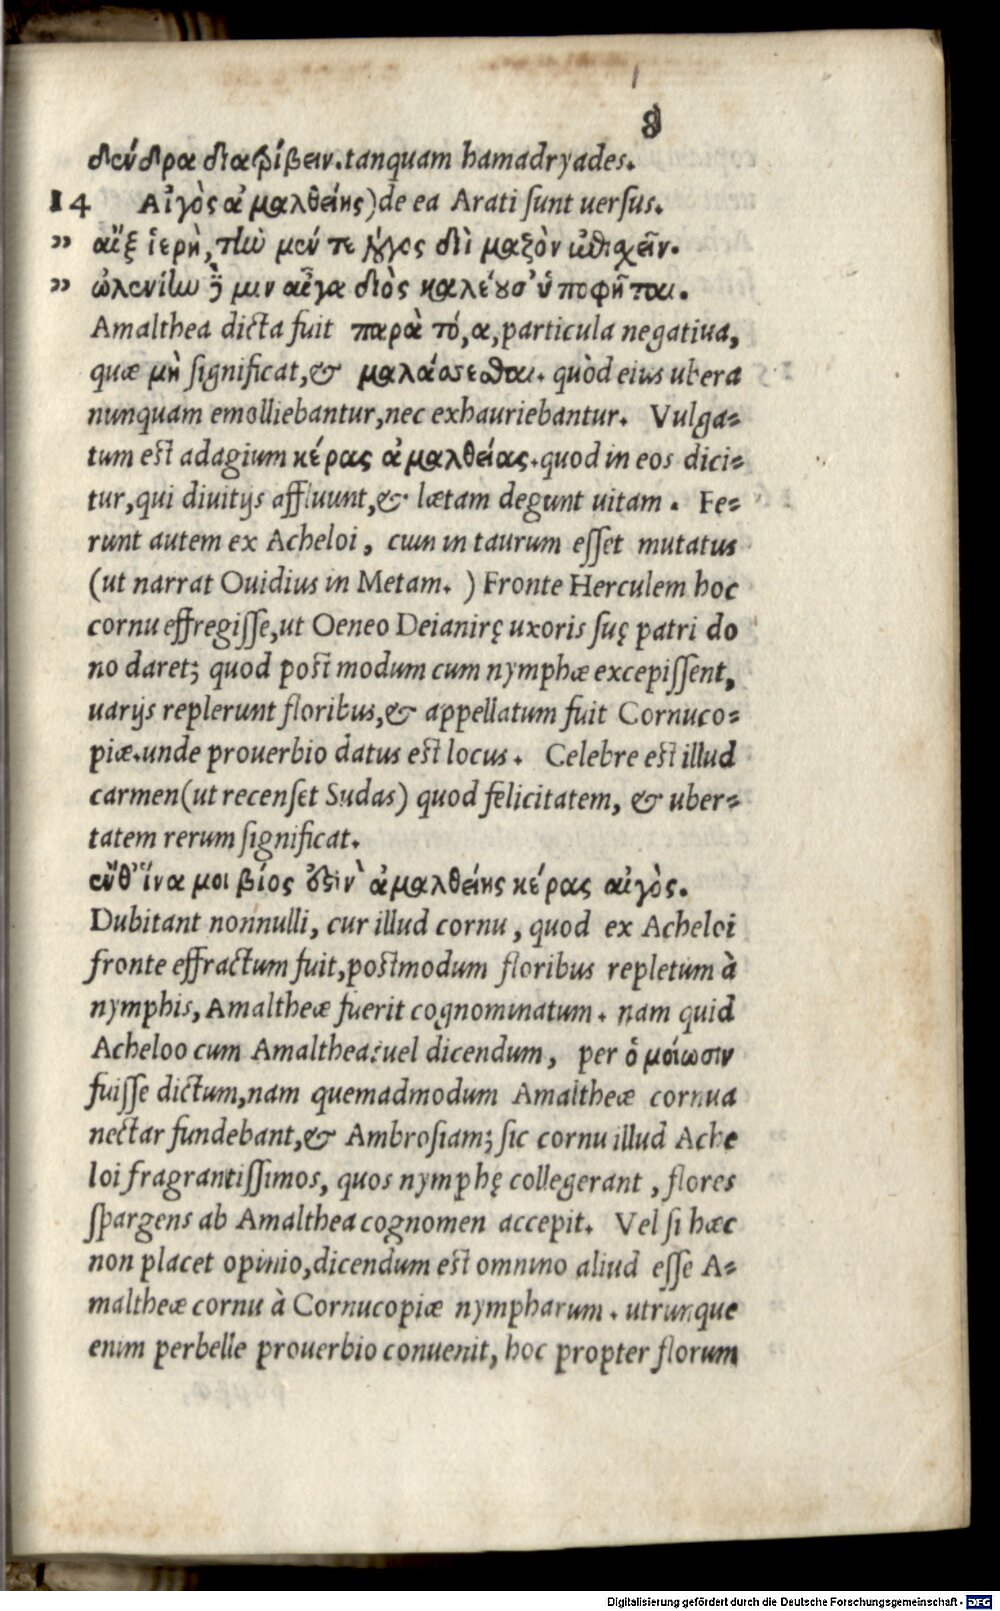 8
δένδρα διατρίβειν. tanquam hamadryades.
14 Αἰγὸς ἀμαλθείης) de ea Arati sunt uersus.
,, αἴξ ἱερὴ, τὴν μέν τε λόγος διὶ μαζὸν ἐπισχεῖν.
,, ὠλενίην δέ μιν αἶγα διὸς καλέουσ' ὑποφῆται.
Amalthea dicta fuit παρὰ τό, α, particula negatiua,
quæ μὴ significat, & μαλάσσεσθαι. quòd eius ubera
nunquam emolliebantur, nec exhauriebantur. Vulga=
tum est adagium κέρας ἀμαλθείας. quod in eos dici=
tur, qui diuitijs affluunt, & lætam degunt uitam. Fe=
runt autem ex Acheloi, cum in taurum esset mutatus
(ut narrat Ouidius in Metam. ) Fronte Herculem hoc
cornu effregisse, ut Oeneo Deianirę uxoris suę patri do
no daret; quod post modum cum nymphæ excepissent,
uarijs replerunt floribus, & appellatum fuit Cornuco=
piæ. unde prouerbio datus est locus. Celebre est illud
carmen (ut recenset Sudas) quod felicitatem, & uber=
tatem rerum significat.
ἔνθ' ἵνα μοι βίος ἐστὶν ἀμαλθείης κέρας αἰγὸς.
Dubitant nonnulli, cur illud cornu, quod ex Acheloi
fronte effractum fuit, postmodum floribus repletum à
nymphis, Amaltheæ fuerit cognominatum. nam quid
Acheloo cum Amalthea: uel dicendum, per ὁμοίωσιν
fuisse dictum, nam quemadmodum Amaltheæ cornua
nectar fundebant, & Ambrosiam; sic cornu illud Ache
loi fragrantissimos, quos nymphę collegerant, flores
spargens ab Amalthea cognomen accepit. Vel si hæc
non placet opinio, dicendum est omnino aliud esse A=
maltheæ cornu à Cornucopiæ nympharum. utrunque
enim perbelle prouerbio conuenit, hoc propter florum
Digitalisierung gefördert durch die Deutsche Forschungsgemeinschaft - DFG